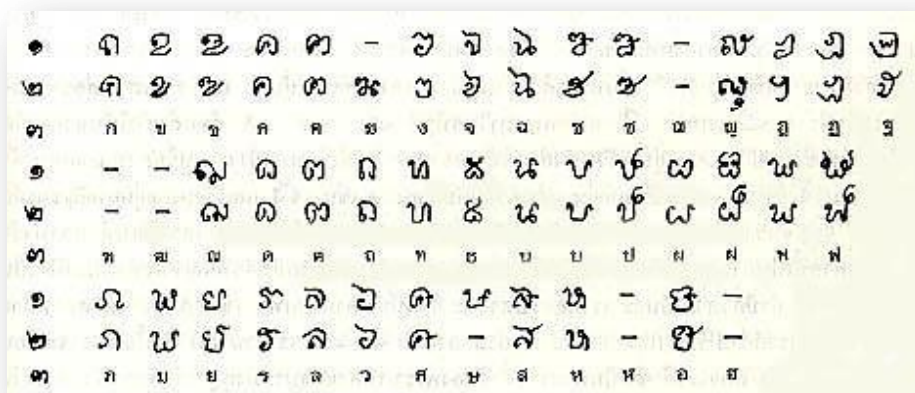 ๑ ก ข ฃ ค ฅ - ง จ ฉ ช ซ - ญ ฎ ฏ ฐ
๒ ก ข ฃ ค ฅ ฆ ง จ ฉ ช ซ - ญ ฎ ฏ ฐ
๓ ก ข ฃ ค ฅ ฆ ง จ ฉ ช ซ ฌ ญ ฎ ฏ ฐ
๑ - - ณ ด ต ถ ท ธ น บ ป ผ ฝ พ ฟ
๒ - - ณ ด ต ถ ท ธ น บ ป ผ ฝ พ ฟ
๓ ฑ ฒ ณ ด ต ถ ท ธ น บ ป ผ ฝ พ ฟ
๑ ภ ม ย ร ล ว ศ ษ ส ห - อ -
๒ ภ ม ย ร ล ว ศ - ส ห - อ -
๓ ภ ม ย ร ล ว ศ ษ ส ห ฬ อ ฮ